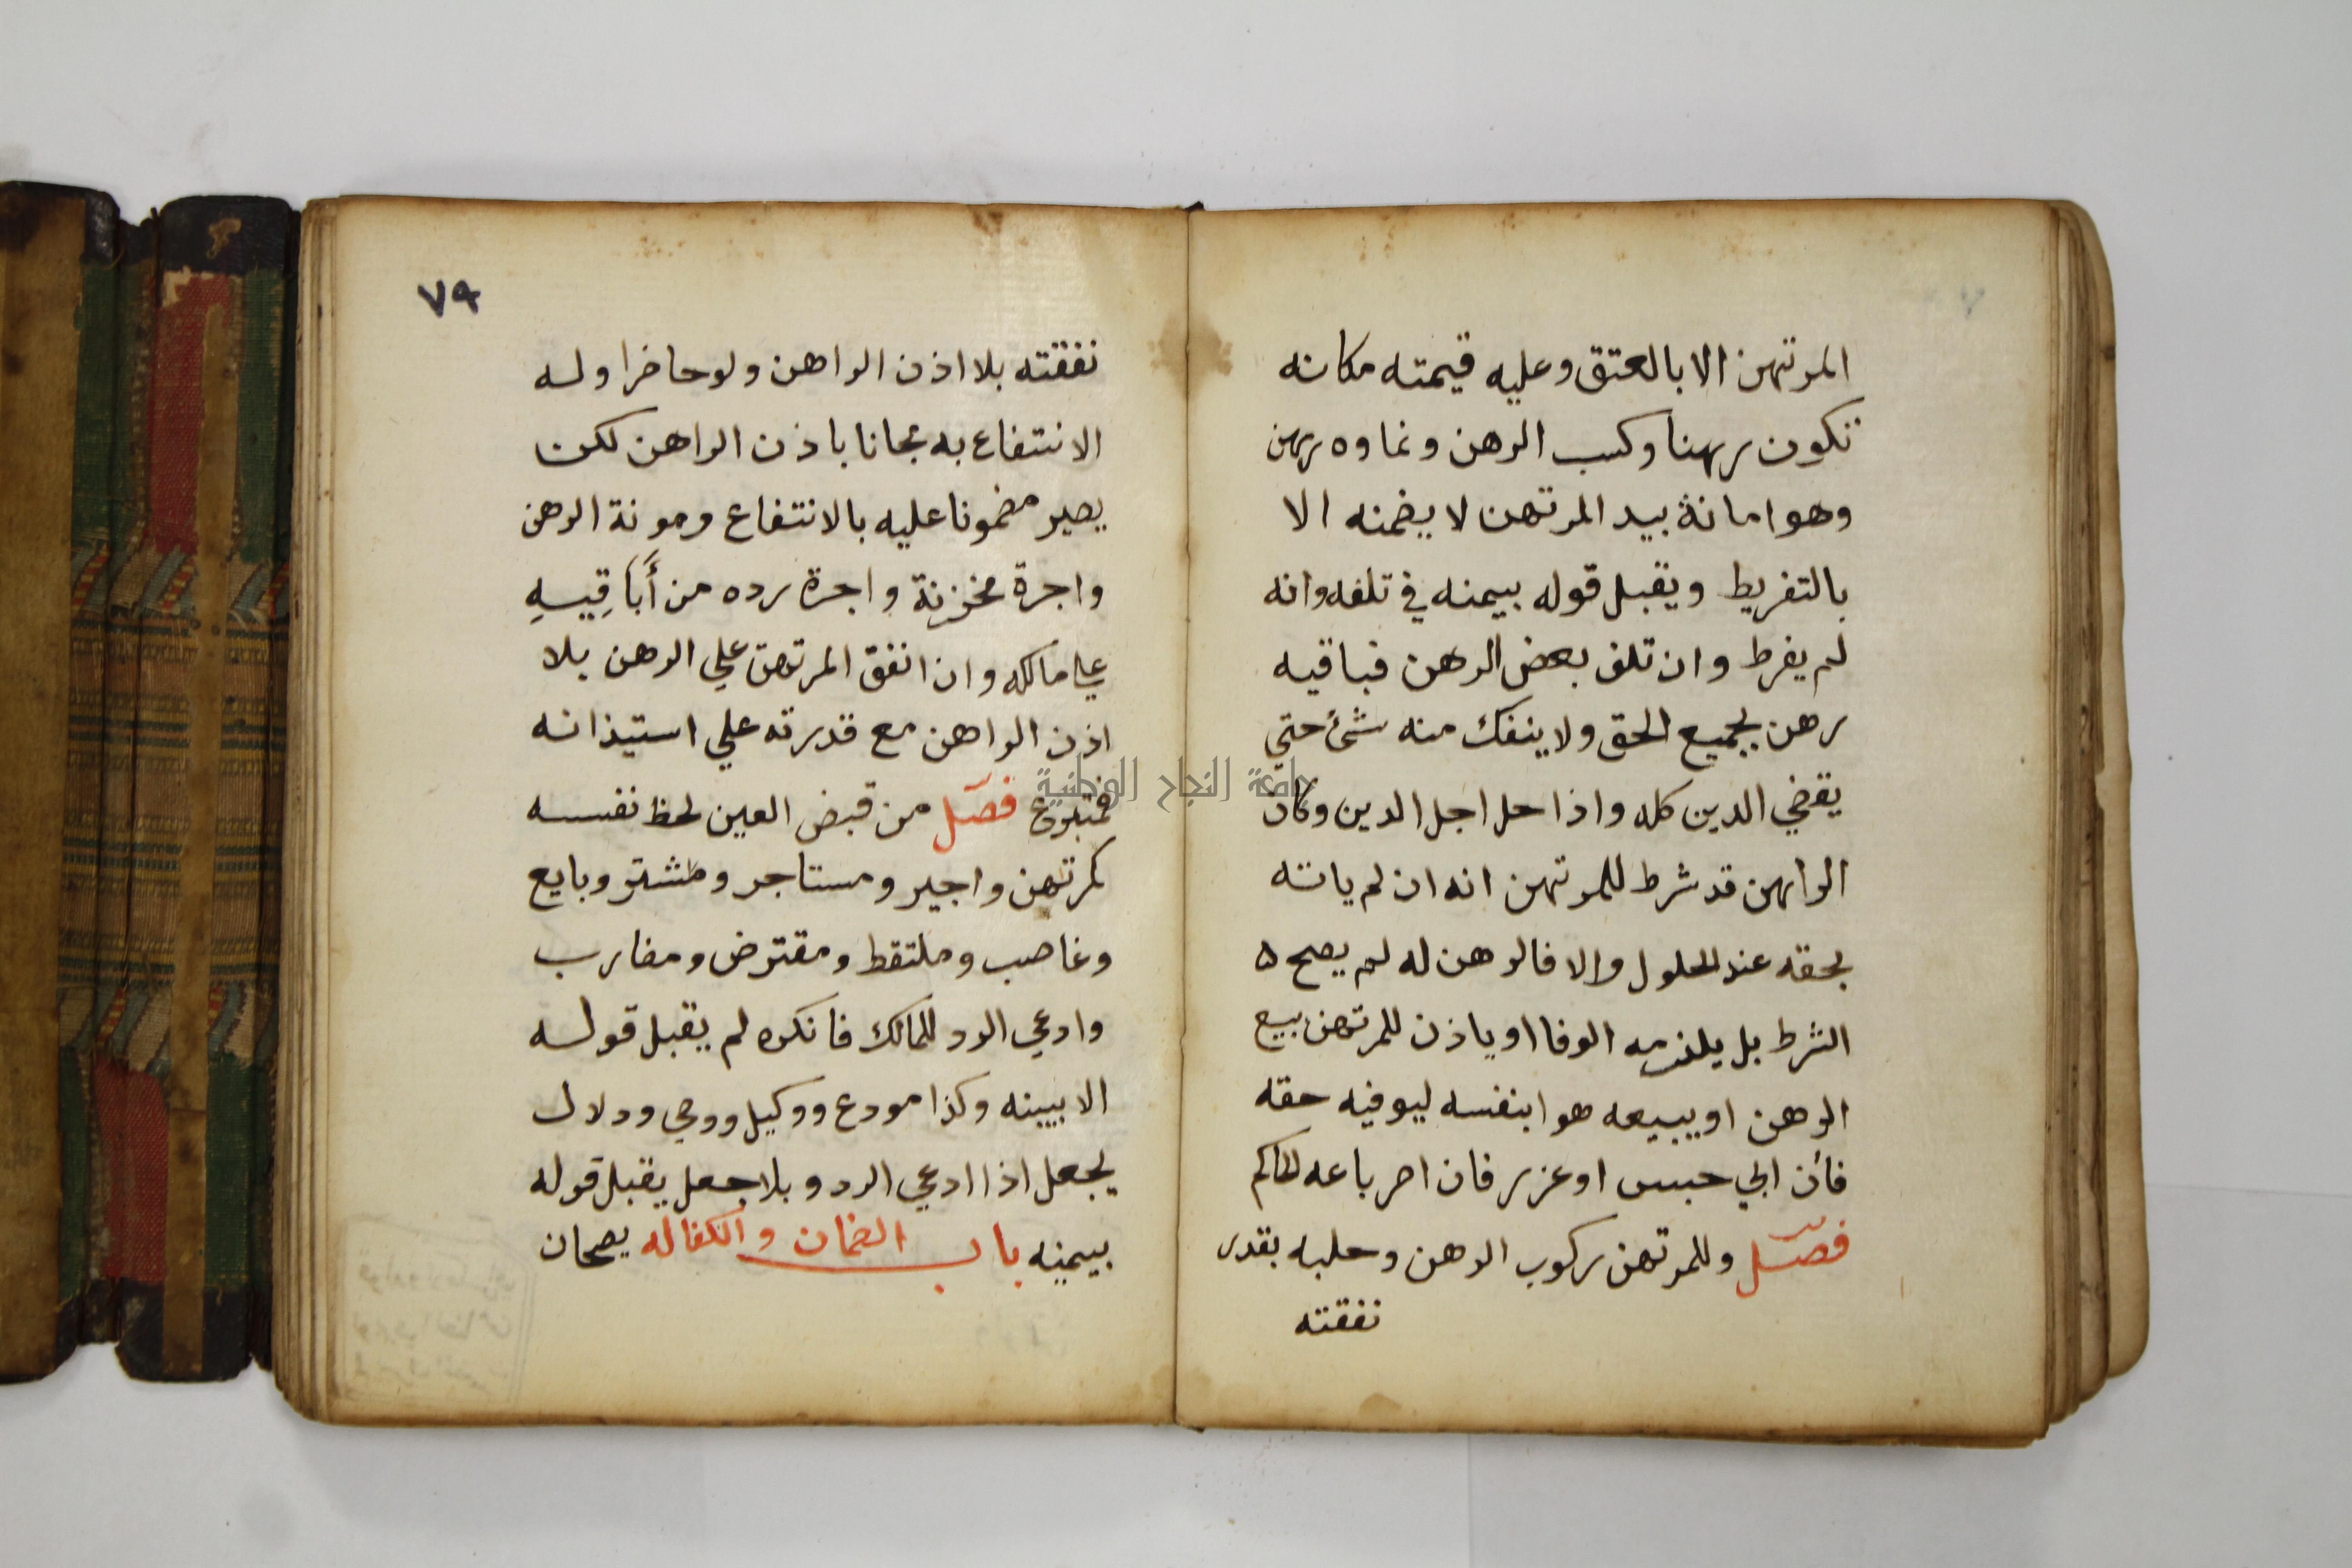 المرتهن الا بالعتق وعليه قيمته مكانه
تكون رهنا وكسب الرهن ونماوه رهن
وهو امانة بيد المرتهن لا يضمنه الا
بالتفريط ويقبل قوله بيمنه في تلفه وانه
لم يفرط وان تلف بعض الرهن فباقيه
رهن بجميع الحق ولا ينفك منه شئ حتي
يقضي الدين كله واذا حل اجل الدين وكان
الراهن قد شرط للمرتهن انه ان لم ياته
بحقه عند الحلول والا فالرهن له لم يصح ه
الشرط بل يلزمه الوفا او ياذن للمرتهن ببيع
الرهن او يبيعه هو ابنفسه ليوفيه حقه
فان ابي حبس او عزر فان اصر باعه الحاكم
فصل وللمرتهن ركوب الرهن وحلبه بقدر
نفقته
٧٩
نفقته بلا اذن الراهن ولو حاضرا وله
الانتفاع به مجانا باذن الراهن لكن
يصير مضمونا عليه بالانتفاع ومونة الرهن
واجرة مخزنة واجرة رده من أَبَاقِيهِ
علي مالكه وان انفق المرتهن علي الرهن بلا
اذن الراهن مع قدرته علي استيذانه
فمتبرع فصل من قبض العين لحظ نفسه
كمرتهن واجير ومستاجر ومشتر وبايع
وغاصب وملتقط ومقترض ومضارب
وادعي الرد للمالك فانكره لم يقبل قوله
الا ببينه وكذا مودع ووكيل ووصي ودلال
بجعل اذا ادعي الرد وبلا جعل يقبل قوله
بيمينه باب الضمان والكفاله يصحان
جامعة النجاح الوطنية